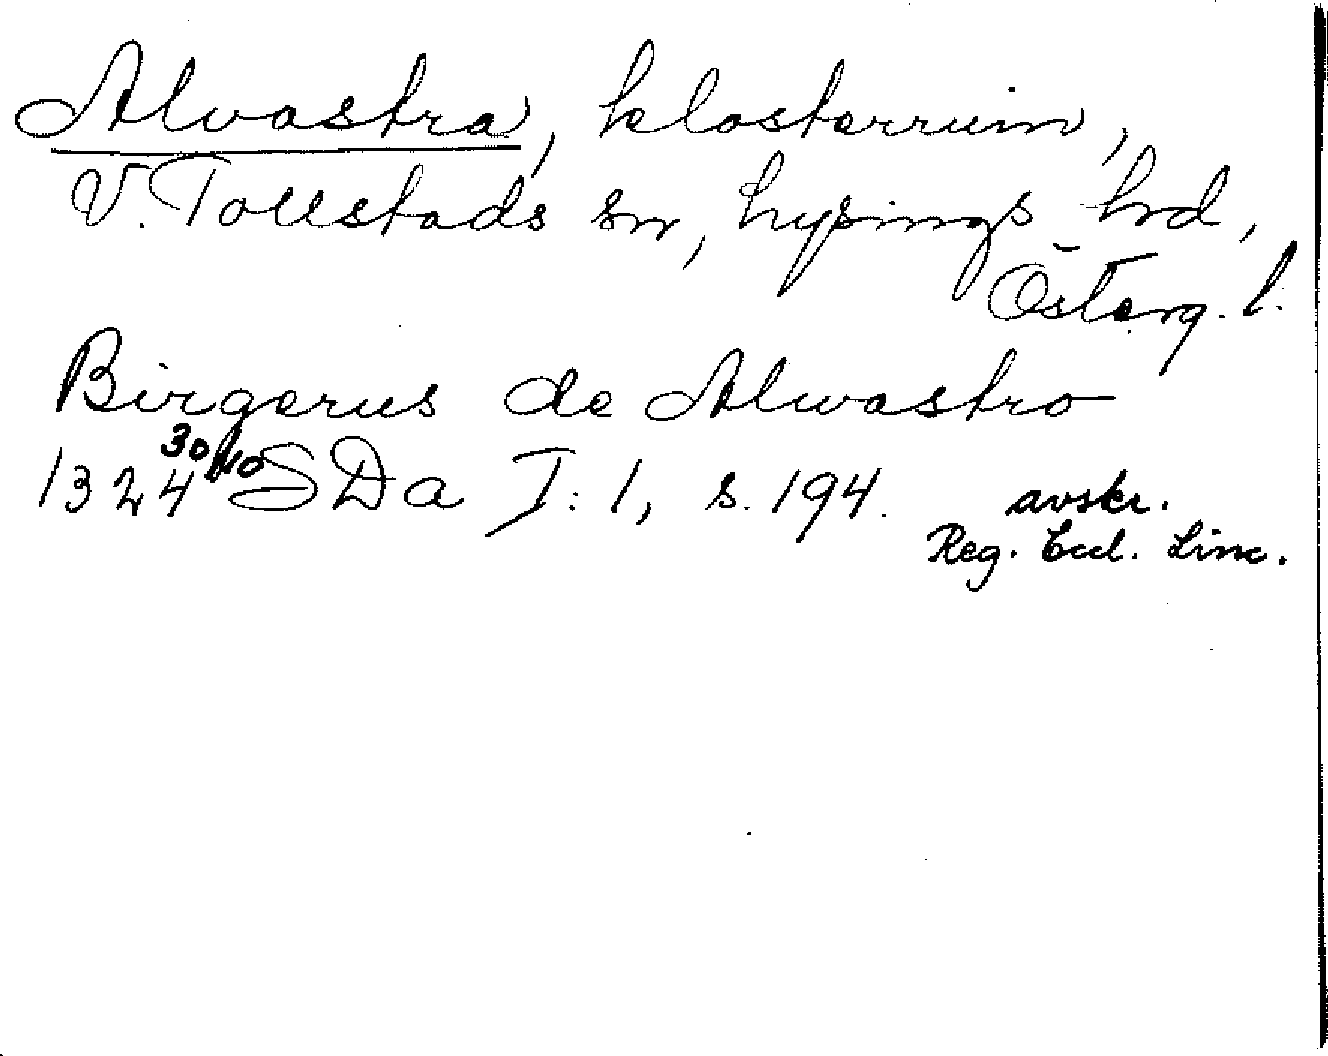 Alvastra, klosterruin,
V. Tollstads sn, Lysings hrd,
Österg. l.
Birgerus de Alwastro
1324 30/10 SDa I: 1, s. 194. avskr.
Reg. Eccl. Linc.